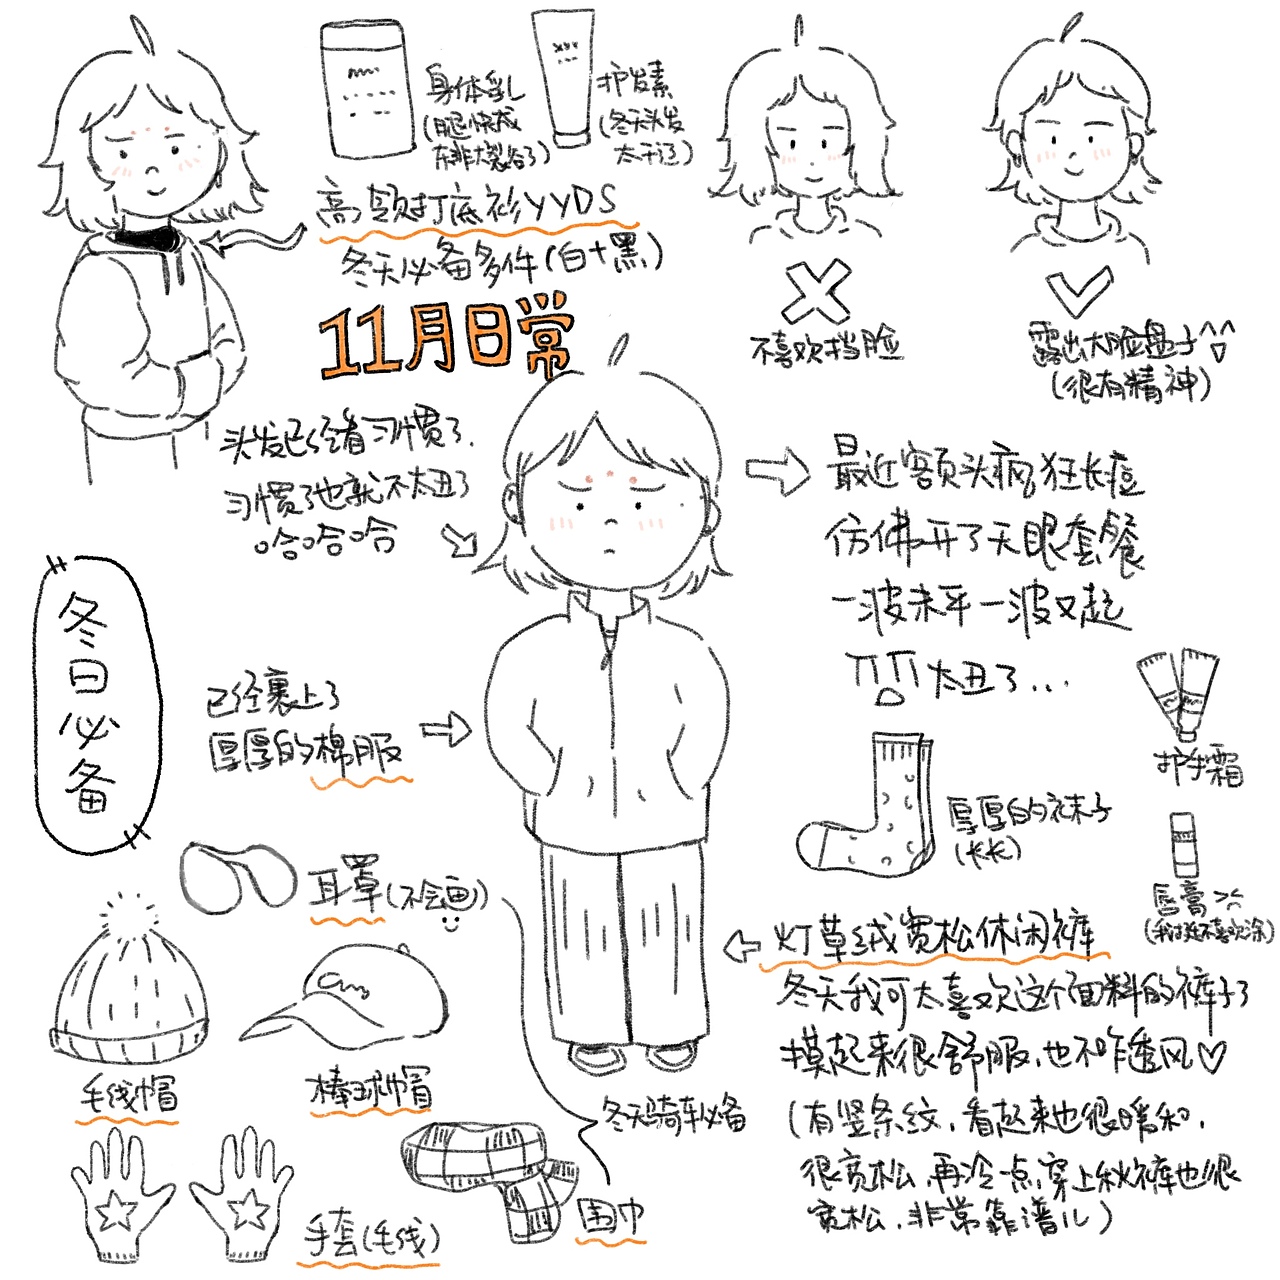 身体乳
(腿快成
东非大裂谷了)
护发素
(冬天头发
太干巴)
高领打底衫YYDS
冬天必备多件(白+黑)
11月日常
不喜欢挡脸
露出大脸盘子
(很有精神)
头发已经看习惯了.
习惯了也就不太丑了
哈哈哈
最近额头疯狂长痘
仿佛开了天眼套餐
一波未平一波又起
太丑了...
冬日必备
已经裹上了
厚厚的棉服
护手霜
厚厚的袜子
(长长)
唇膏
(我讨厌不喜欢涂)
耳罩(不会画)
灯草绒宽松休闲裤
冬天我可太喜欢这个面料的裤子了
摸起来很舒服,也不咋透风♡
(有竖条纹,看起来也很暖和,
很宽松,再冷一点,穿上秋裤也很
宽松,非常靠谱儿)
毛线帽
棒球帽
冬天骑车必备
围巾
手套(毛线)